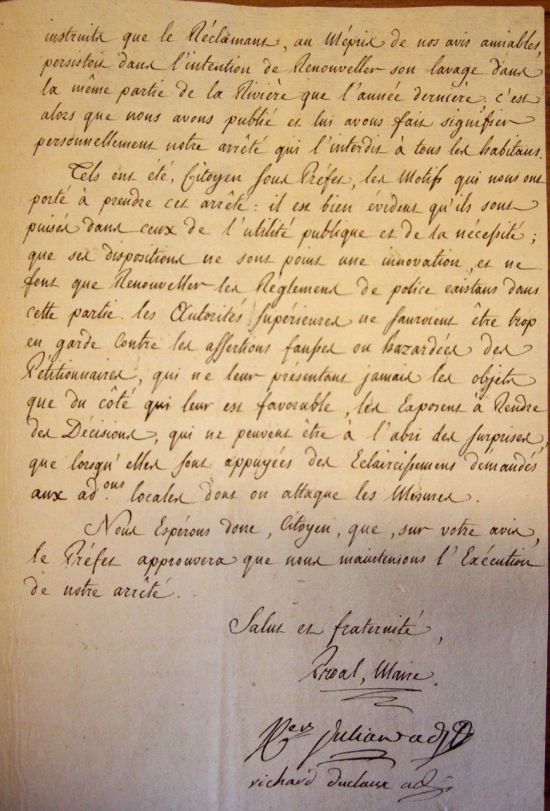 instruits que le Réclamant, au Mépris de nos avis amiables,
persistoit dans l'intention de Renouveller son lavage dans
la même partie de la Rivière que l'année dernière; c'est
alors que nous avons publié et lui avons fait signifier
personnellement notre arrêté qui l'interdit à tous les habitans.
Tels ont été, Citoyen sous Préfet, les Motifs qui nous ont
porté à prendre cet arrêté: il est bien évident qu'ils sont
puisés dans ceux de l'utilité publique et de la nécessité;
que ses dispositions ne sont point une innovation, et ne
font que Renouveller les Réglemens de police existans dans
cette partie. les Autorités supérieures ne sauroient être trop
en garde contre les assertions fausses ou hazardées des
Pétitionnaires, qui ne leur présentant jamais les objets
que du côté qui leur est favorable, les Exposent à Rendre
des Décisions, qui ne peuvent être à l'abri des surprises,
que lorsqu'elles sont appuyées des Eclaircissemens demandés
aux ad.ons locales dont on attaque les Mesures.
Nous Espérons donc, Citoyen, que, sur votre avis,
le Préfet approuvera que nous maintenions l'Exécution
de notre arrêté.
Salut et fraternité,
Proal, Maire.
Julian adj
richard duclaux adj